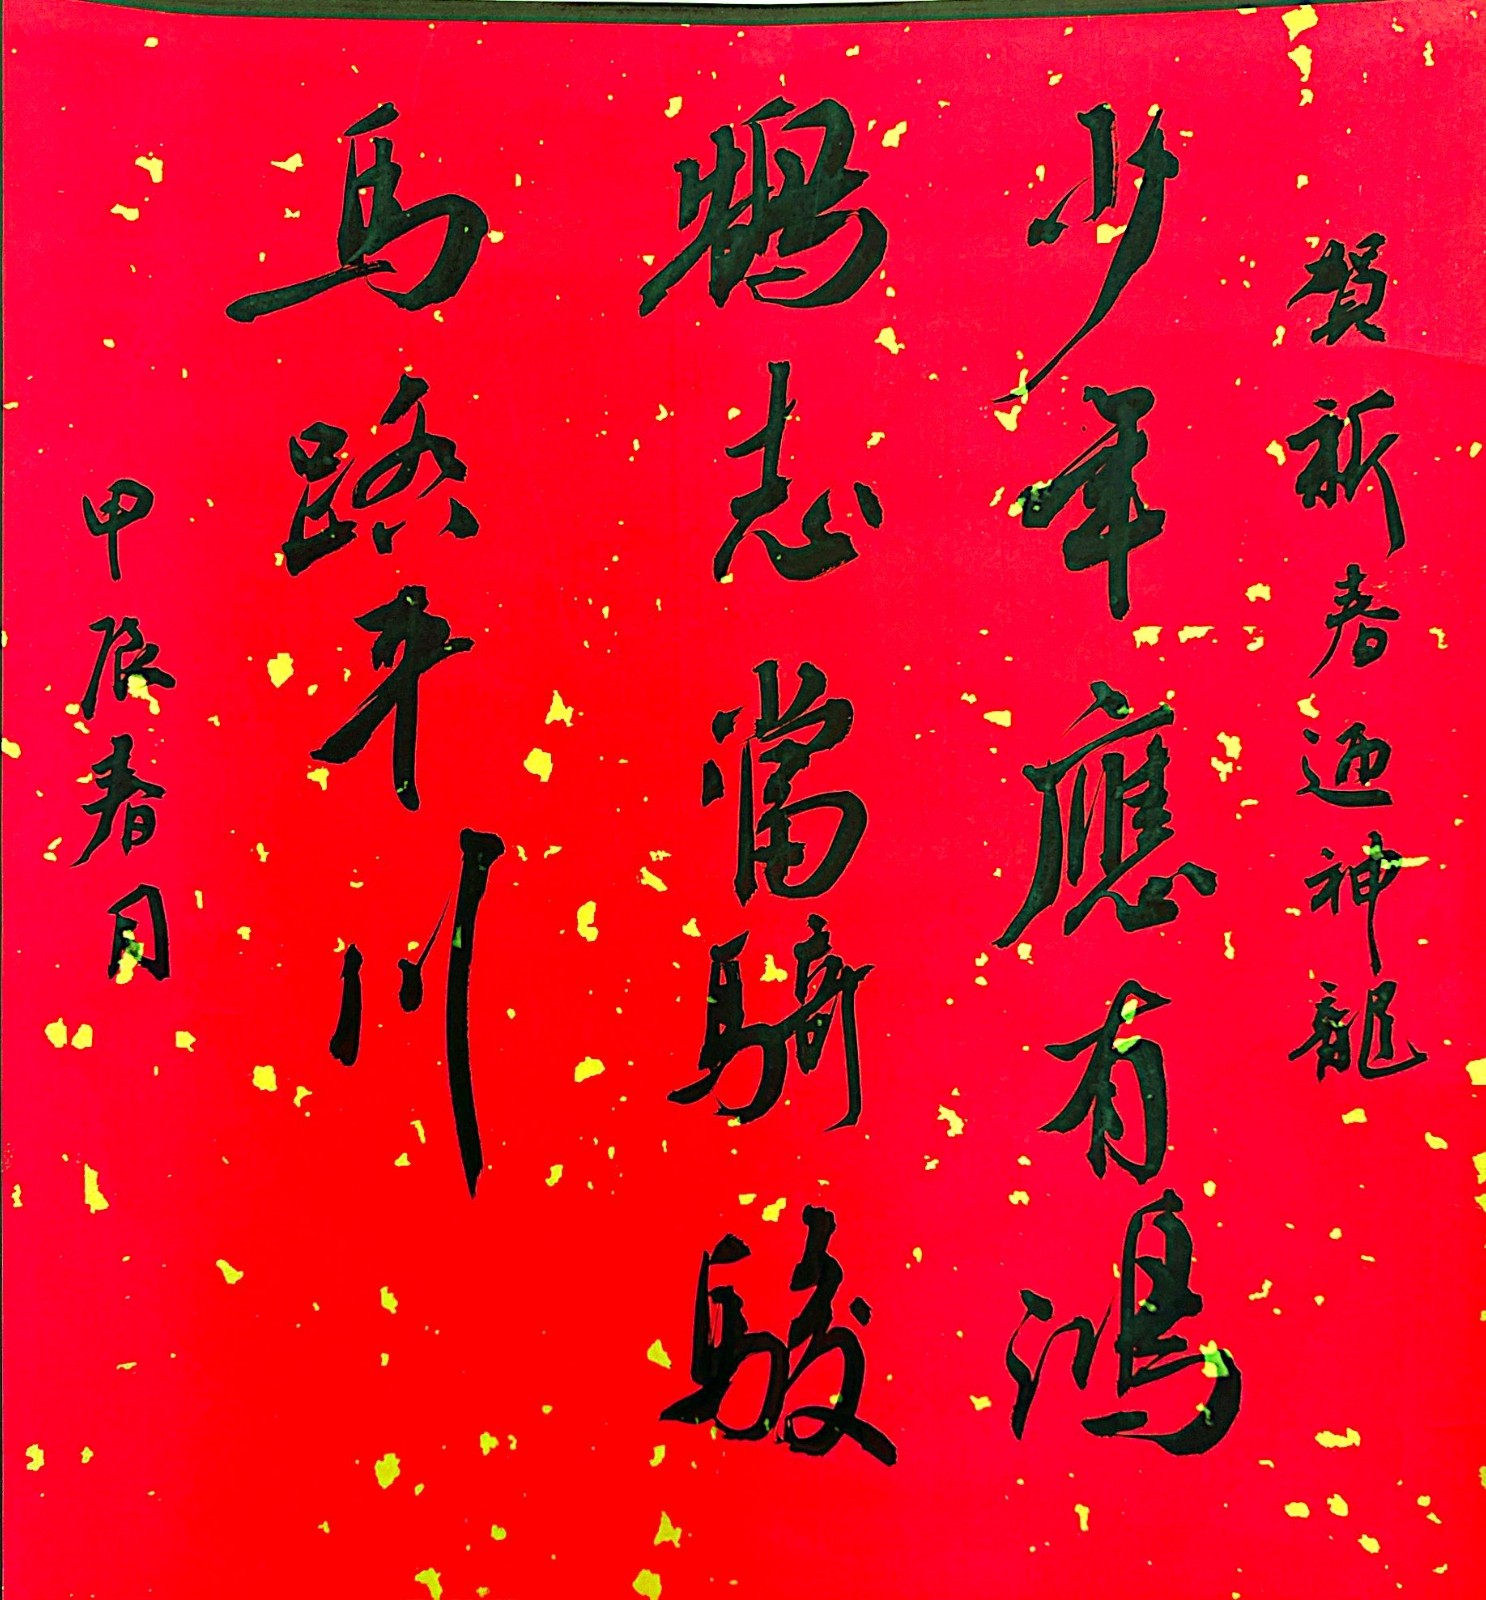 賀新春迎神龍
少年應有鴻
鵠志當騎駿
馬踏平川
甲辰春月